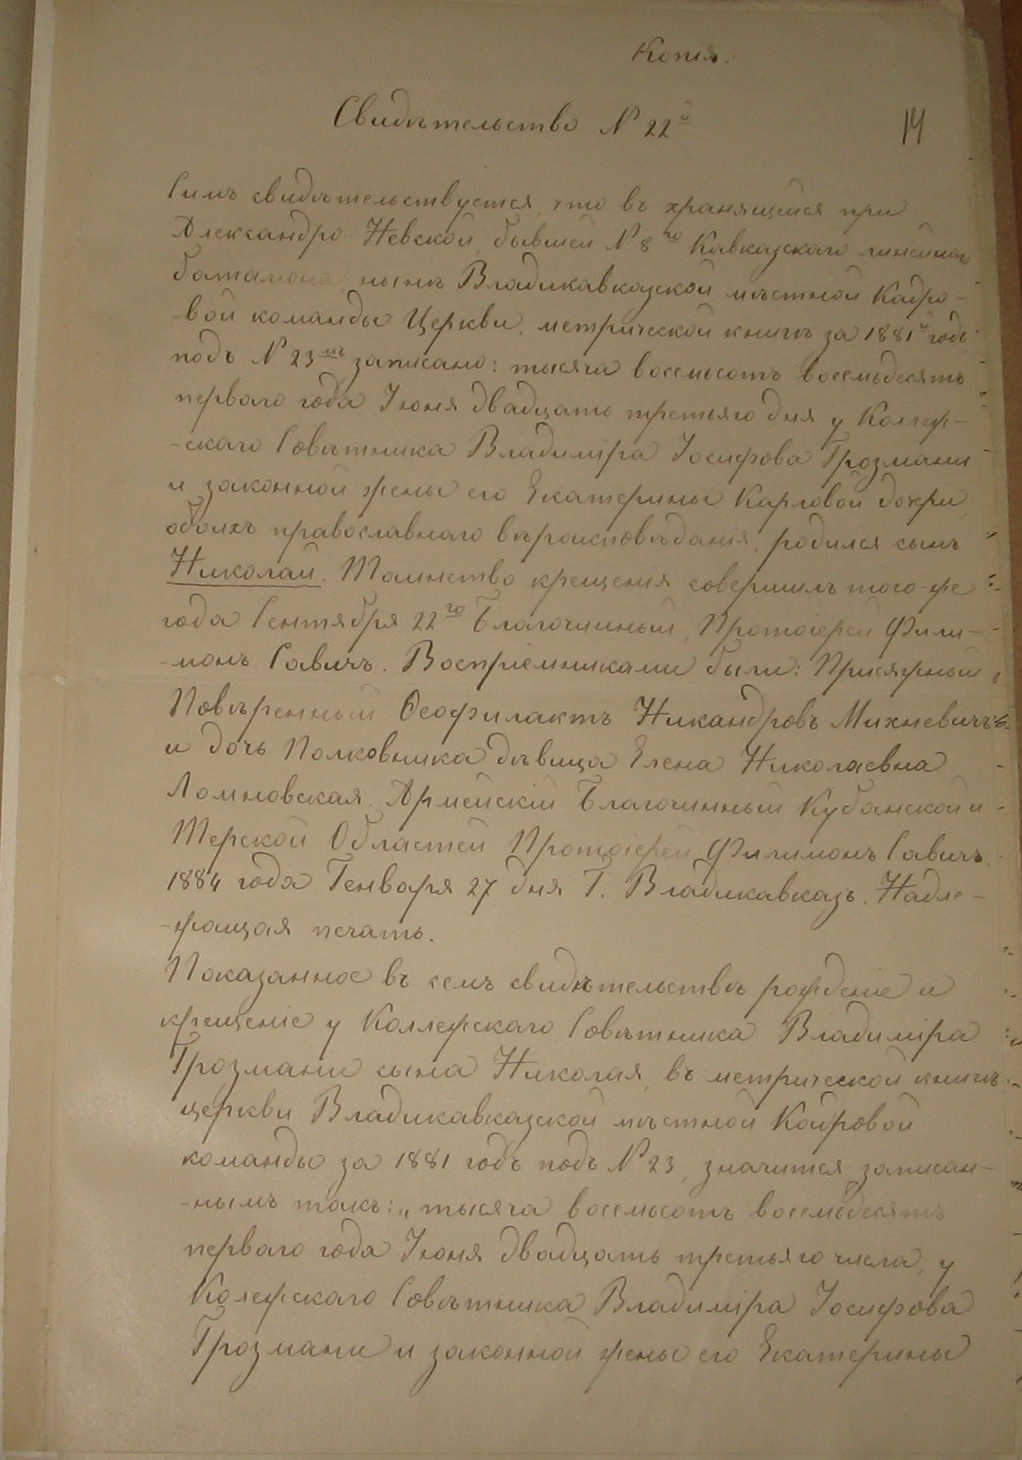 Копія.
Свидѣтельство № 22й
14
Симъ свидѣтельствуется, что въ хранящейся при
Александро Невской, бывшей № 8го Кавказскаго линейнаго
баталіона, нынѣ Владикавказской мѣстной Кадро-
-вой команды Церкви, метрической книгѣ за 1881й годъ
подъ № 23мъ записано: тысяча восемьсотъ восемьдесятъ
перваго года Іюня двадцать третьяго дня у Коллеж-
-скаго Совѣтника Владиміра Іосифова Грозмани
и законной жены его Екатерины Карловой дочери,
обоихъ православнаго вѣроисповѣданія, родился сынъ
Николай. Таинство крещенія совершилъ того-же
года Сентября 22го Благочинный, Протоіерей Фили-
-монъ Савичъ. Воспріемниками были: Присяжный
Повѣренный Ѳеофилактъ Никандровъ Михневичъ
и дочь Полковника дѣвица Елена Николаевна
Ломновская. Армейскій Благочинный Кубанской и
Терской Областей Протоіерей Филимонъ Савичъ.
1884 года Генваря 27 дня Г. Владикавказъ. Надле-
-жащая печать.
Показанное въ семъ свидѣтельствѣ рожденіе и
крещеніе у Коллежскаго Совѣтника Владиміра
Грозмани сына Николая, въ метрической книгѣ
церкви Владикавказской мѣстной Кадровой
команды за 1881 годъ подъ № 23, значится записан-
-нымъ такъ: „тысяча восемьсотъ восемьдесятъ
перваго года Іюня двадцать третьяго числа, у
Колежскаго Совѣтника Владиміра Іосифова
Грозмани и законной жены его Екатерины